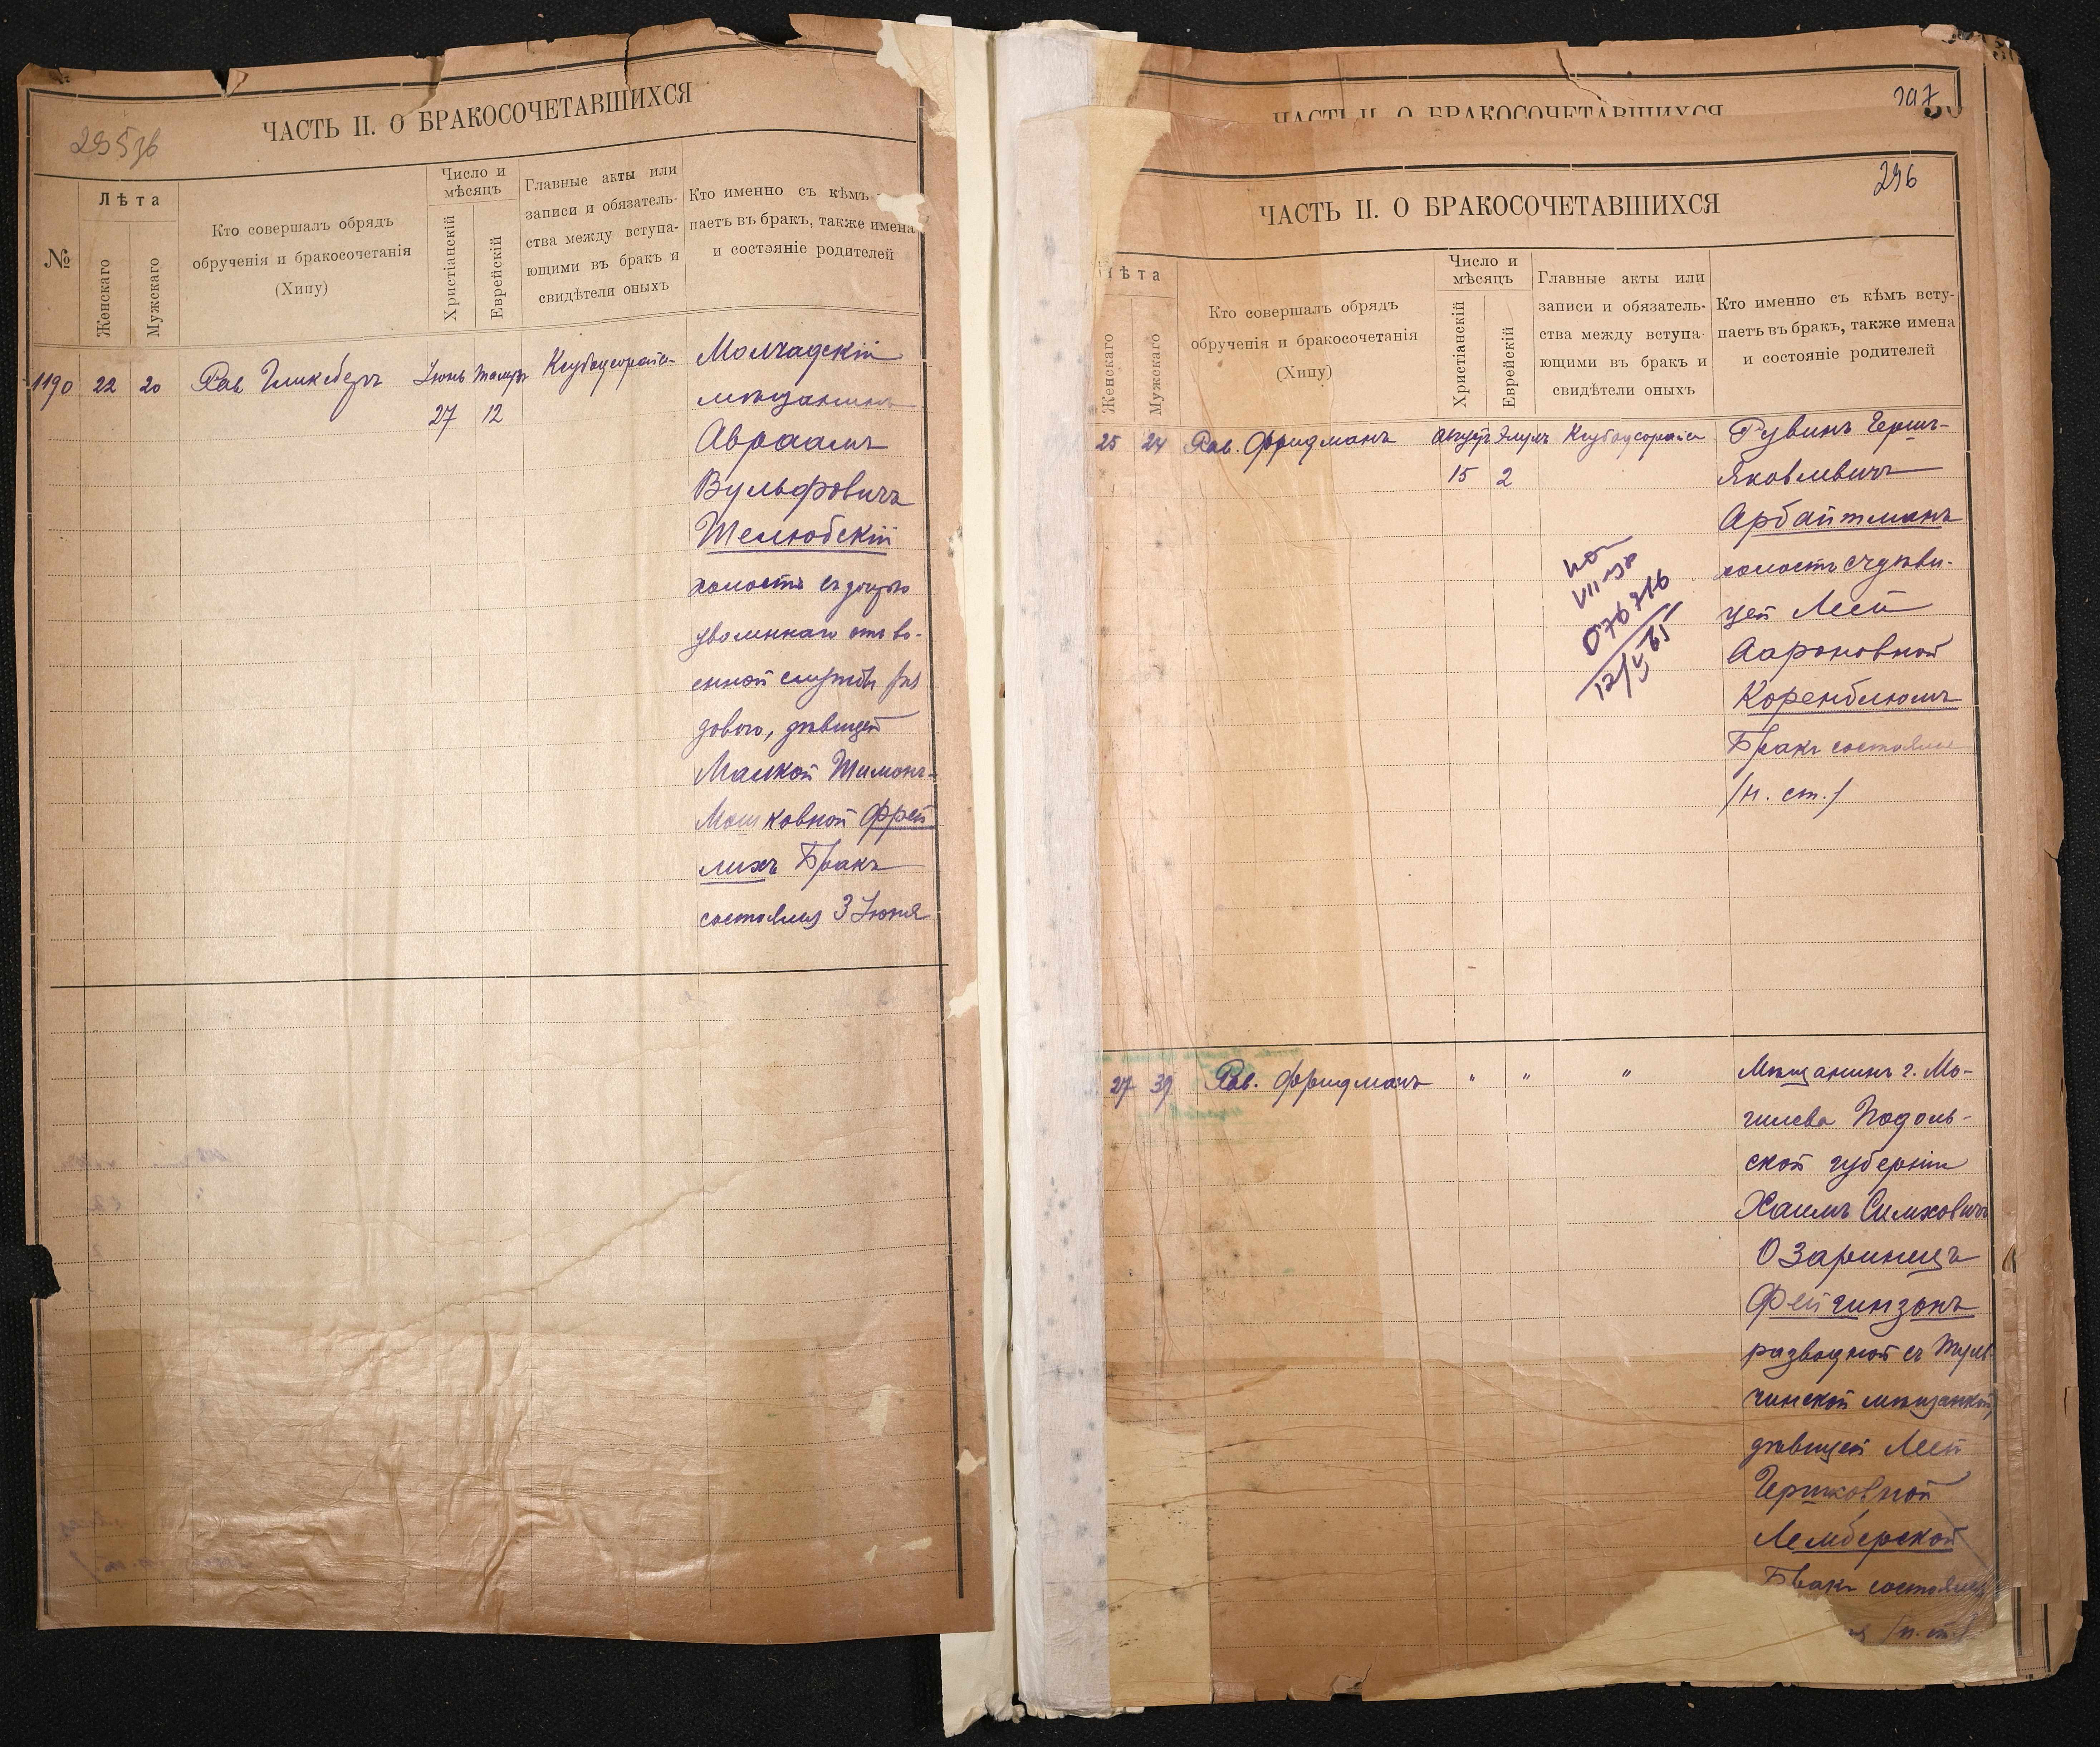 295 об
ЧАСТЬ II. О БРАКОСОЧЕТАВШИХСЯ
№
Лѣта
Женскаго
Мужскаго
Кто совершалъ обрядъ
обрученія и бракосочетанія
(Хипу)
Число и
мѣсяцъ
Христіанскій
Еврейскій
Главные акты или
записи и обязатель-
ства между вступа-
ющими въ бракъ и
свидѣтели оныхъ
Кто именно съ кѣмъ
паетъ въ бракъ, также имена
и состояніе родителей
1190 22 20 Рав. Гликсбергъ Іюнь Тамузъ
27 12
Молчадскій
мѣщанинъ
Авраамъ
Вульфовичъ
Шелюбскій
холостъ съ дочерью
уволеннаго отъ во-
енной службы ря
дового, дѣвицей
Малкой Шимонъ-
Мошковной Фрей
лихъ Бракъ
состоялся 3 Іюня
297
ЧАСТЬ II. О БРАКОСОЧЕТАВШИХСЯ
296
ЧАСТЬ II. О БРАКОСОЧЕТАВШИХСЯ
ѣта
Женскаго
Мужскаго
Кто совершалъ обрядъ
обрученія и бракосочетанія
(Хипу)
Число и
мѣсяцъ
Христіанскій
Еврейскій
Главные акты или
записи и обязатель-
ства между вступа-
ющими въ бракъ и
свидѣтели оныхъ
Кто именно съ кѣмъ всту-
паетъ въ бракъ, также имена
и состояніе родителей
25 24 Рав. Фридманъ Августъ Элулъ
15 2
Рувинъ Гершъ-
Яковлевичъ
Арбайтманъ
холостъ съ дѣви-
цей Леей
Аароновной
Коренблюмъ
Бракъ состоялся
/н. ст./
076716
12/V 65
27 39 Рав. Фридманъ " " "
Мѣщанинъ г. Мо-
гилева Подоль-
ской губерніи
Хаимъ Симховичъ
Озаринецъ
Фейгинзонъ
разводной съ Туль
чинской мѣщанкой,
дѣвицей Леей
Гершковной
Лемберской
Бракъ состоялся
/н. ст./